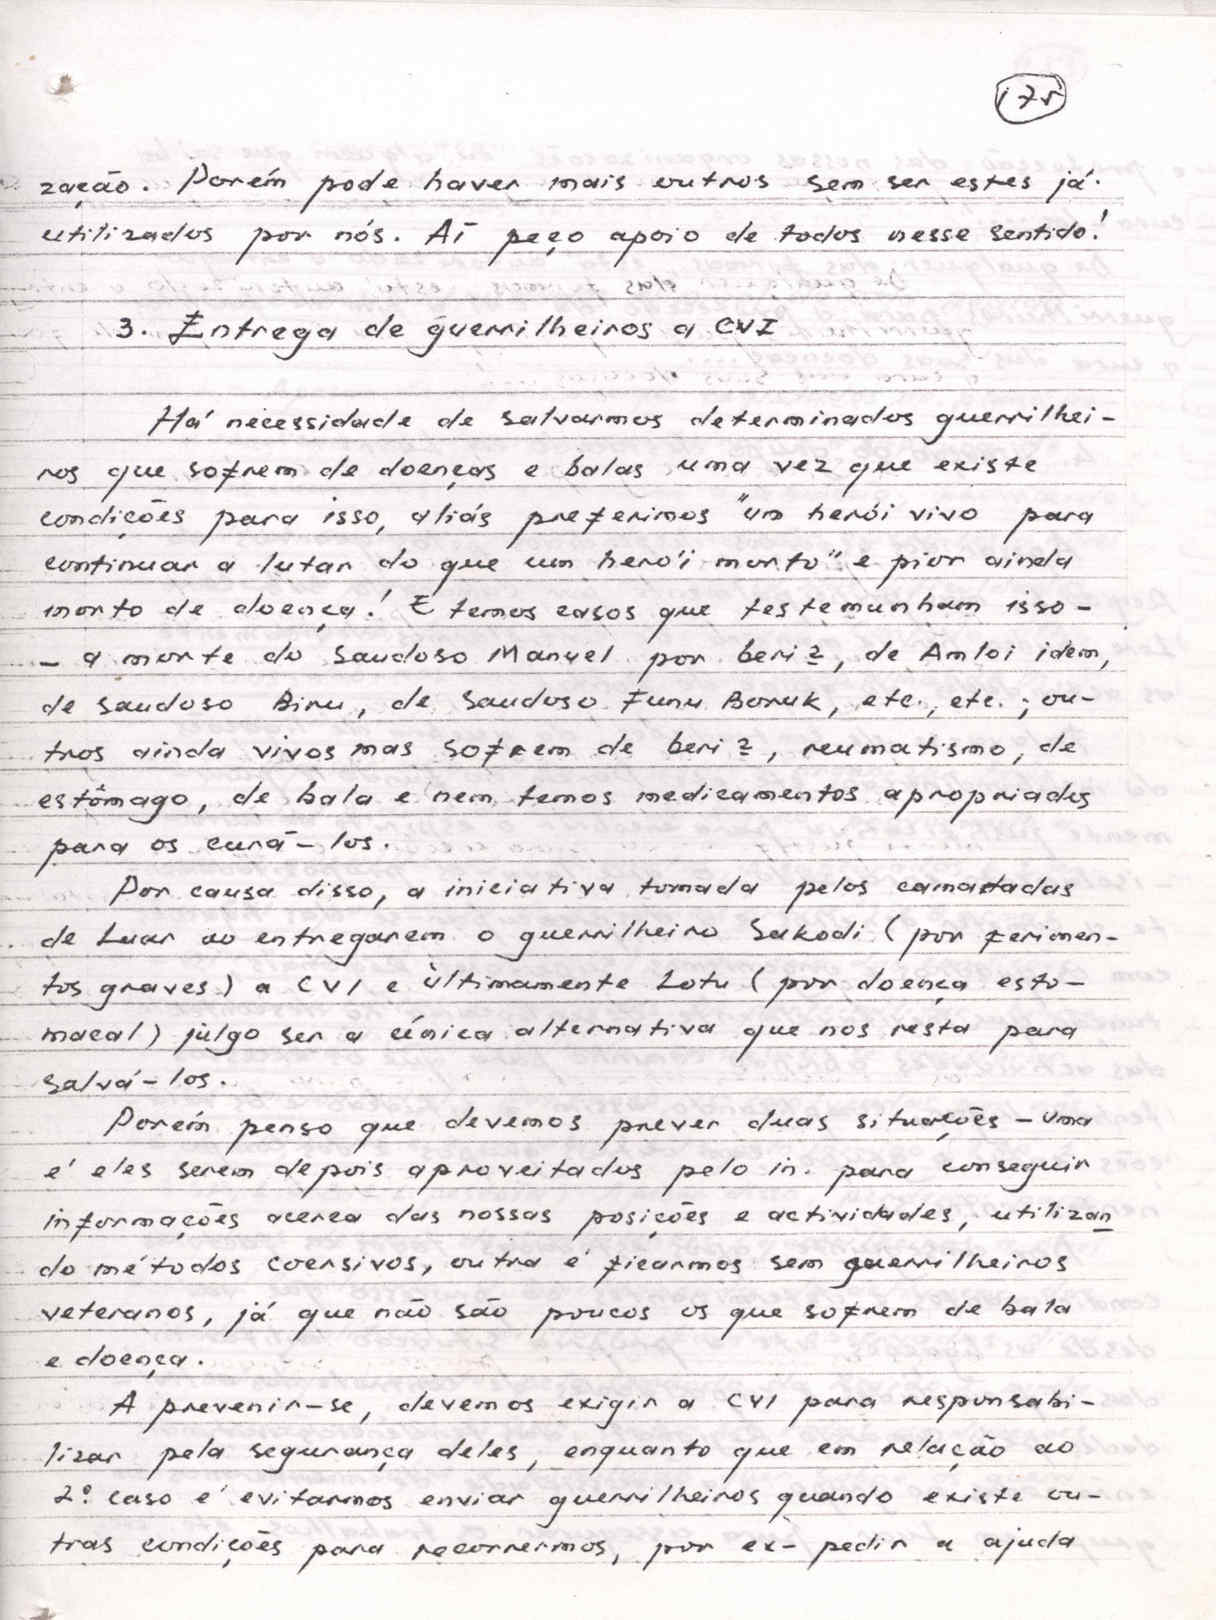 175
zação. Porém pode haver mais outros sem ser estes já
utilizados por nós. Aí peço apoio de todos nesse sentido!
3. Entrega de guerrilheiros a CVI
Há necessidade de salvarmos determinados guerrilhei-
ros que sofrem de doenças e balas uma vez que existe
condições para isso, aliás preferimos "um herói vivo para
continuar a lutar do que um herói morto" e pior ainda
morto de doença! E temos casos que testemunham isso -
- a morte do Saudoso Manuel por beri2, de Amloi idem,
de saudoso Biru, de saudoso Funu Boruk, etc., etc.; ou-
tros ainda vivos mas sofrem de beri2, reumatismo, de
estômago, de bala e nem temos medicamentos apropriados
para os curá-los.
Por causa disso, a iniciativa tomada pelos camaradas
de Luar ao entregarem o guerrilheiro Sakodi (por ferimen-
tos graves) a CVI e ùltimamente Lotu (por doença esto-
macal) julgo ser a única alternativa que nos resta para
salvá-los.
Porém penso que devemos prever duas situações - uma
é eles serem depois aproveitados pelo in. para conseguir
informações acerca das nossas posições e actividades, utilizan
do métodos coersivos, outra é ficarmos sem guerrilheiros
veteranos, já que não são poucos os que sofrem de bala
e doença.
A prevenir-se, devemos exigir a CVI para responsabi-
lizar pela segurança deles, enquanto que em relação ao
2º caso é evitarmos enviar guerrilheiros quando existe ou-
tras condições para recorrermos, por ex- pedir a ajuda